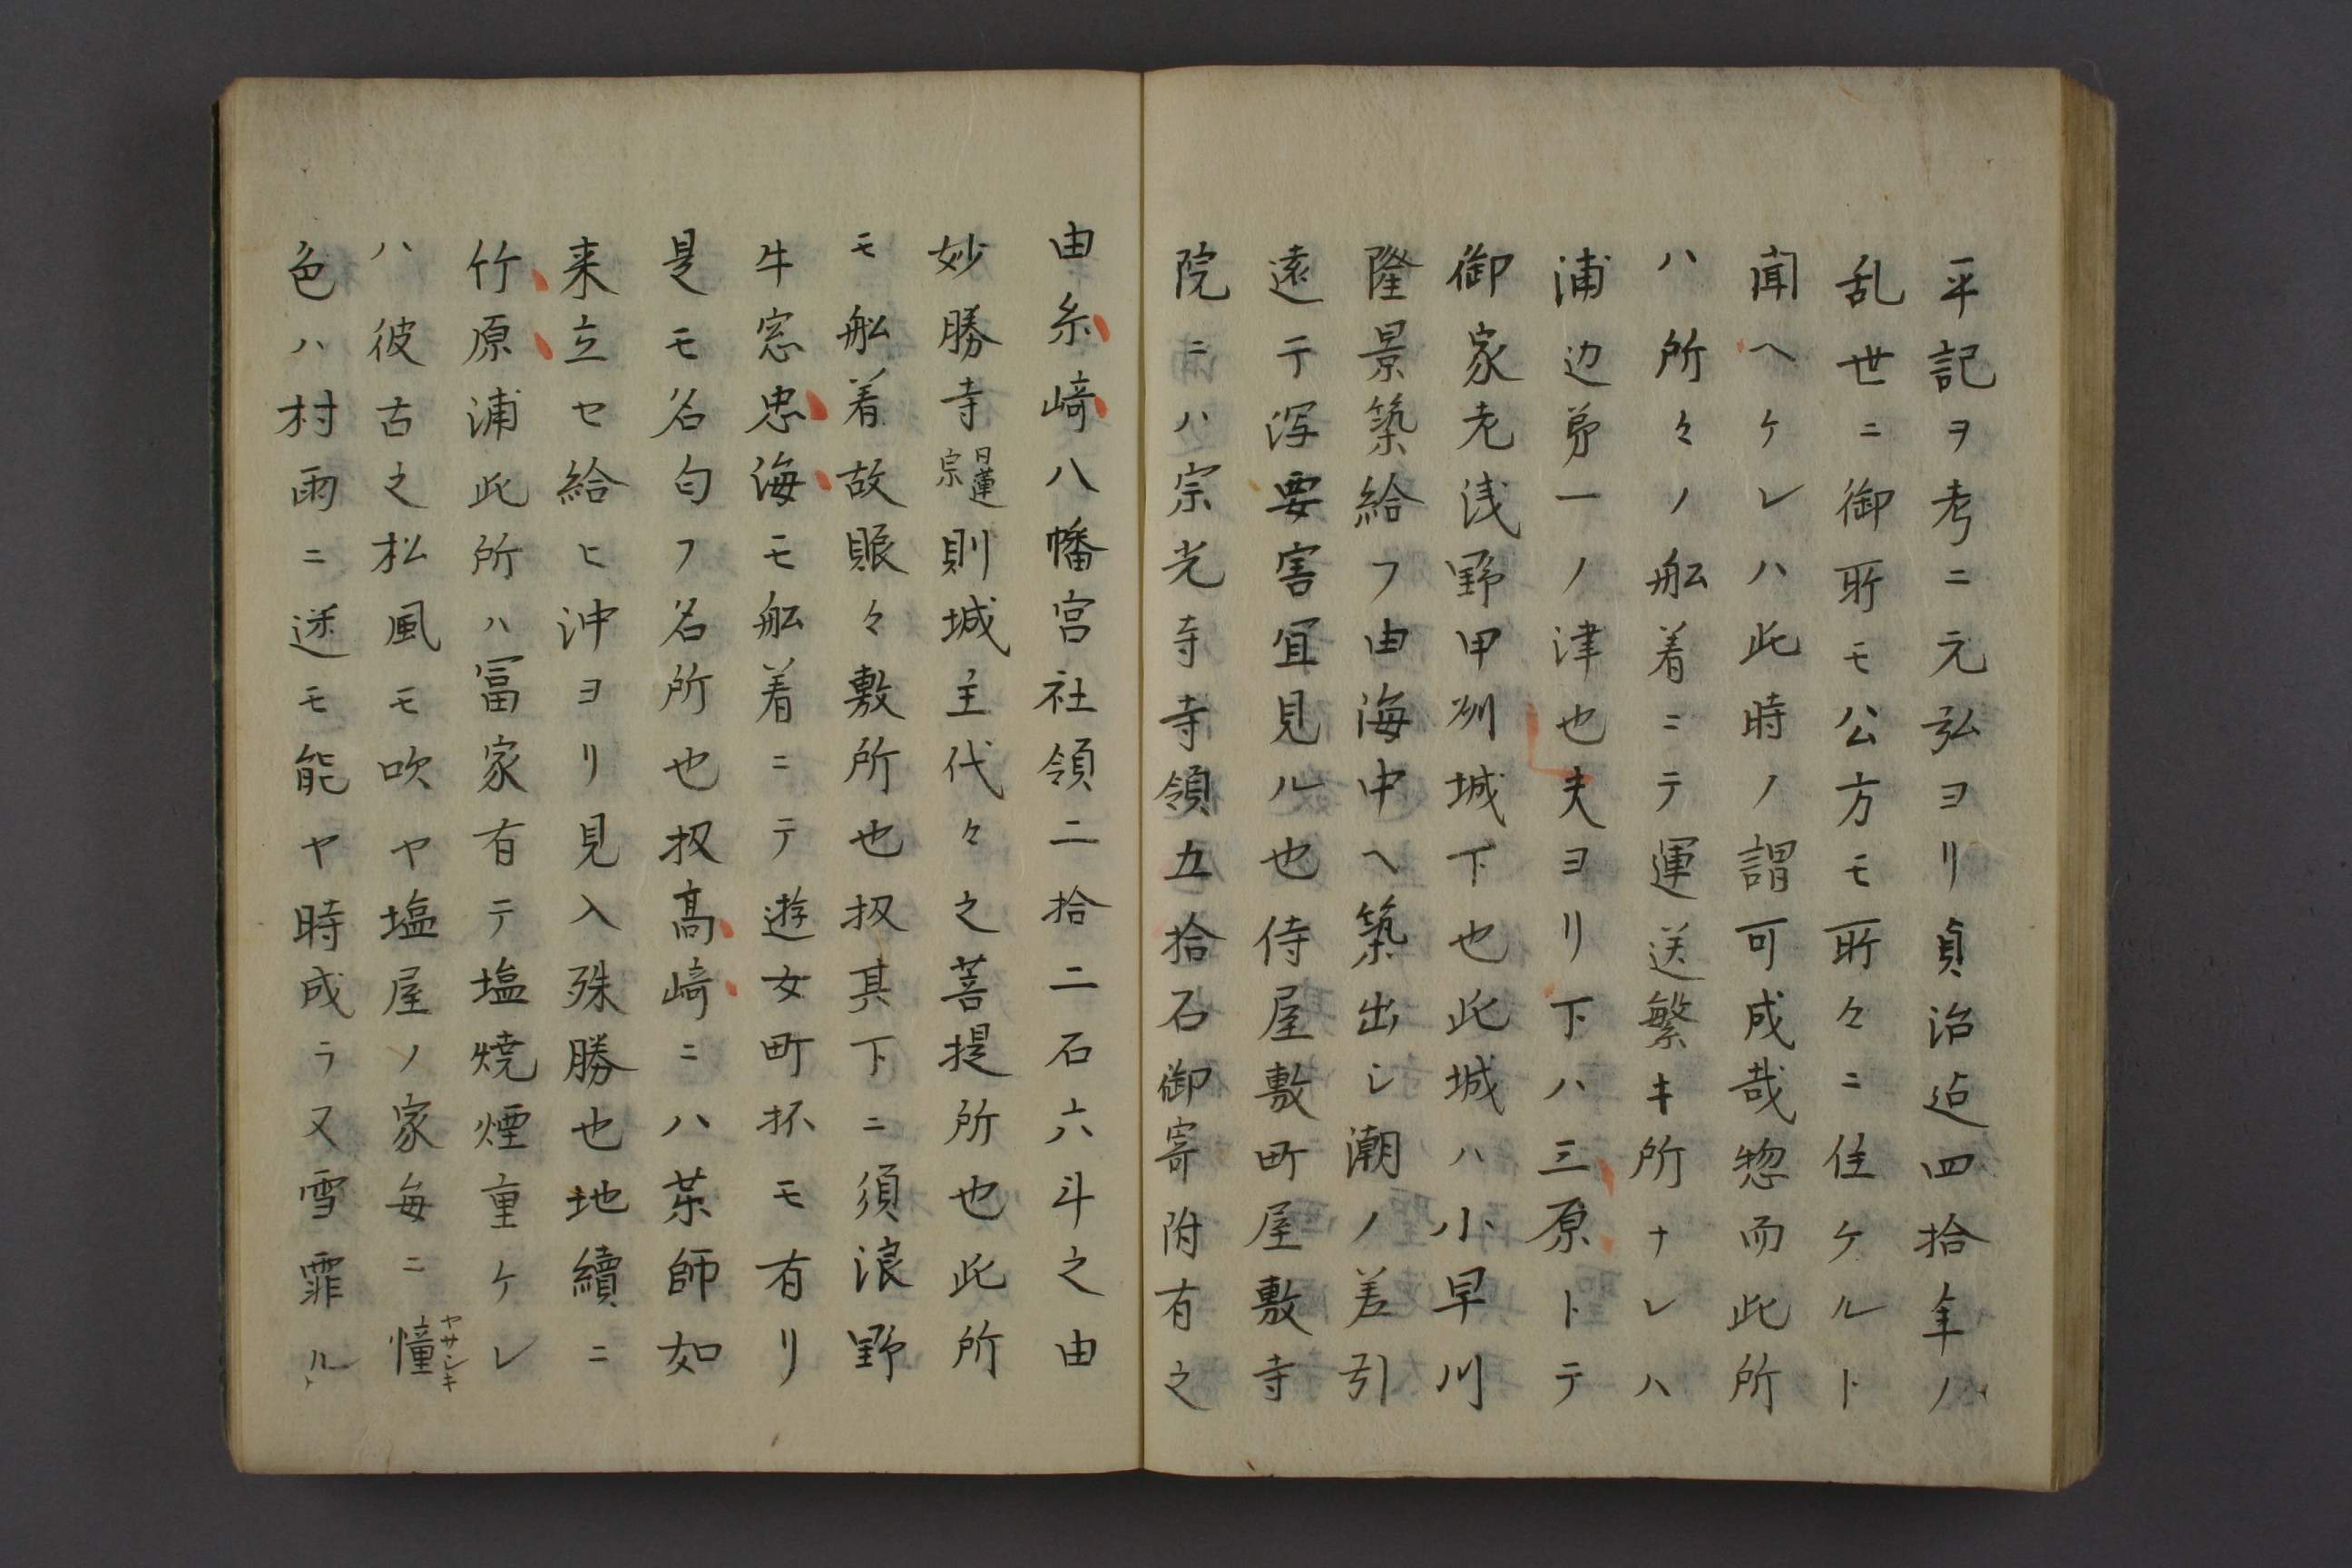 平記ヲ考ニ元弘ヨリ貞治迠四拾年ノ
乱世ニ御所モ公方モ所々ニ住ケルト
聞ヘケレハ此時ノ謂可成哉惣而此所
ハ所々ノ舩着ニテ運送繁キ所ナレハ
浦辺第一ノ津也夫ヨリ下ハ三原トテ
御家老浅野甲州城下也此城ハ小早川
隆景築給フ由海中ヘ築出シ潮ノ差引
遠テ深要害冝見ル也侍屋敷町屋敷寺
院ニハ宗光寺寺領五拾石御寄附有之
由糸﨑八幡宮社領二拾二石六斗之由
妙勝寺日蓮宗則城主代々之菩提所也此所
モ舩着故賑々敷所也扨其下ニ須浪野
牛窓忠海モ舩着ニテ遊女町抔モ有リ
是モ名匂フ名所也扨髙﨑ニハ薬師如
来立セ給ヒ沖ヨリ見入殊勝也地續ニ
竹原浦此所ハ冨家有テ塩焼煙重ケレ
ハ彼古之松風モ吹ヤ塩屋ノ家毎ニ憧ヤサシキ
色ハ村雨ニ迷モ能ヤ時成ラ又雪霏ル